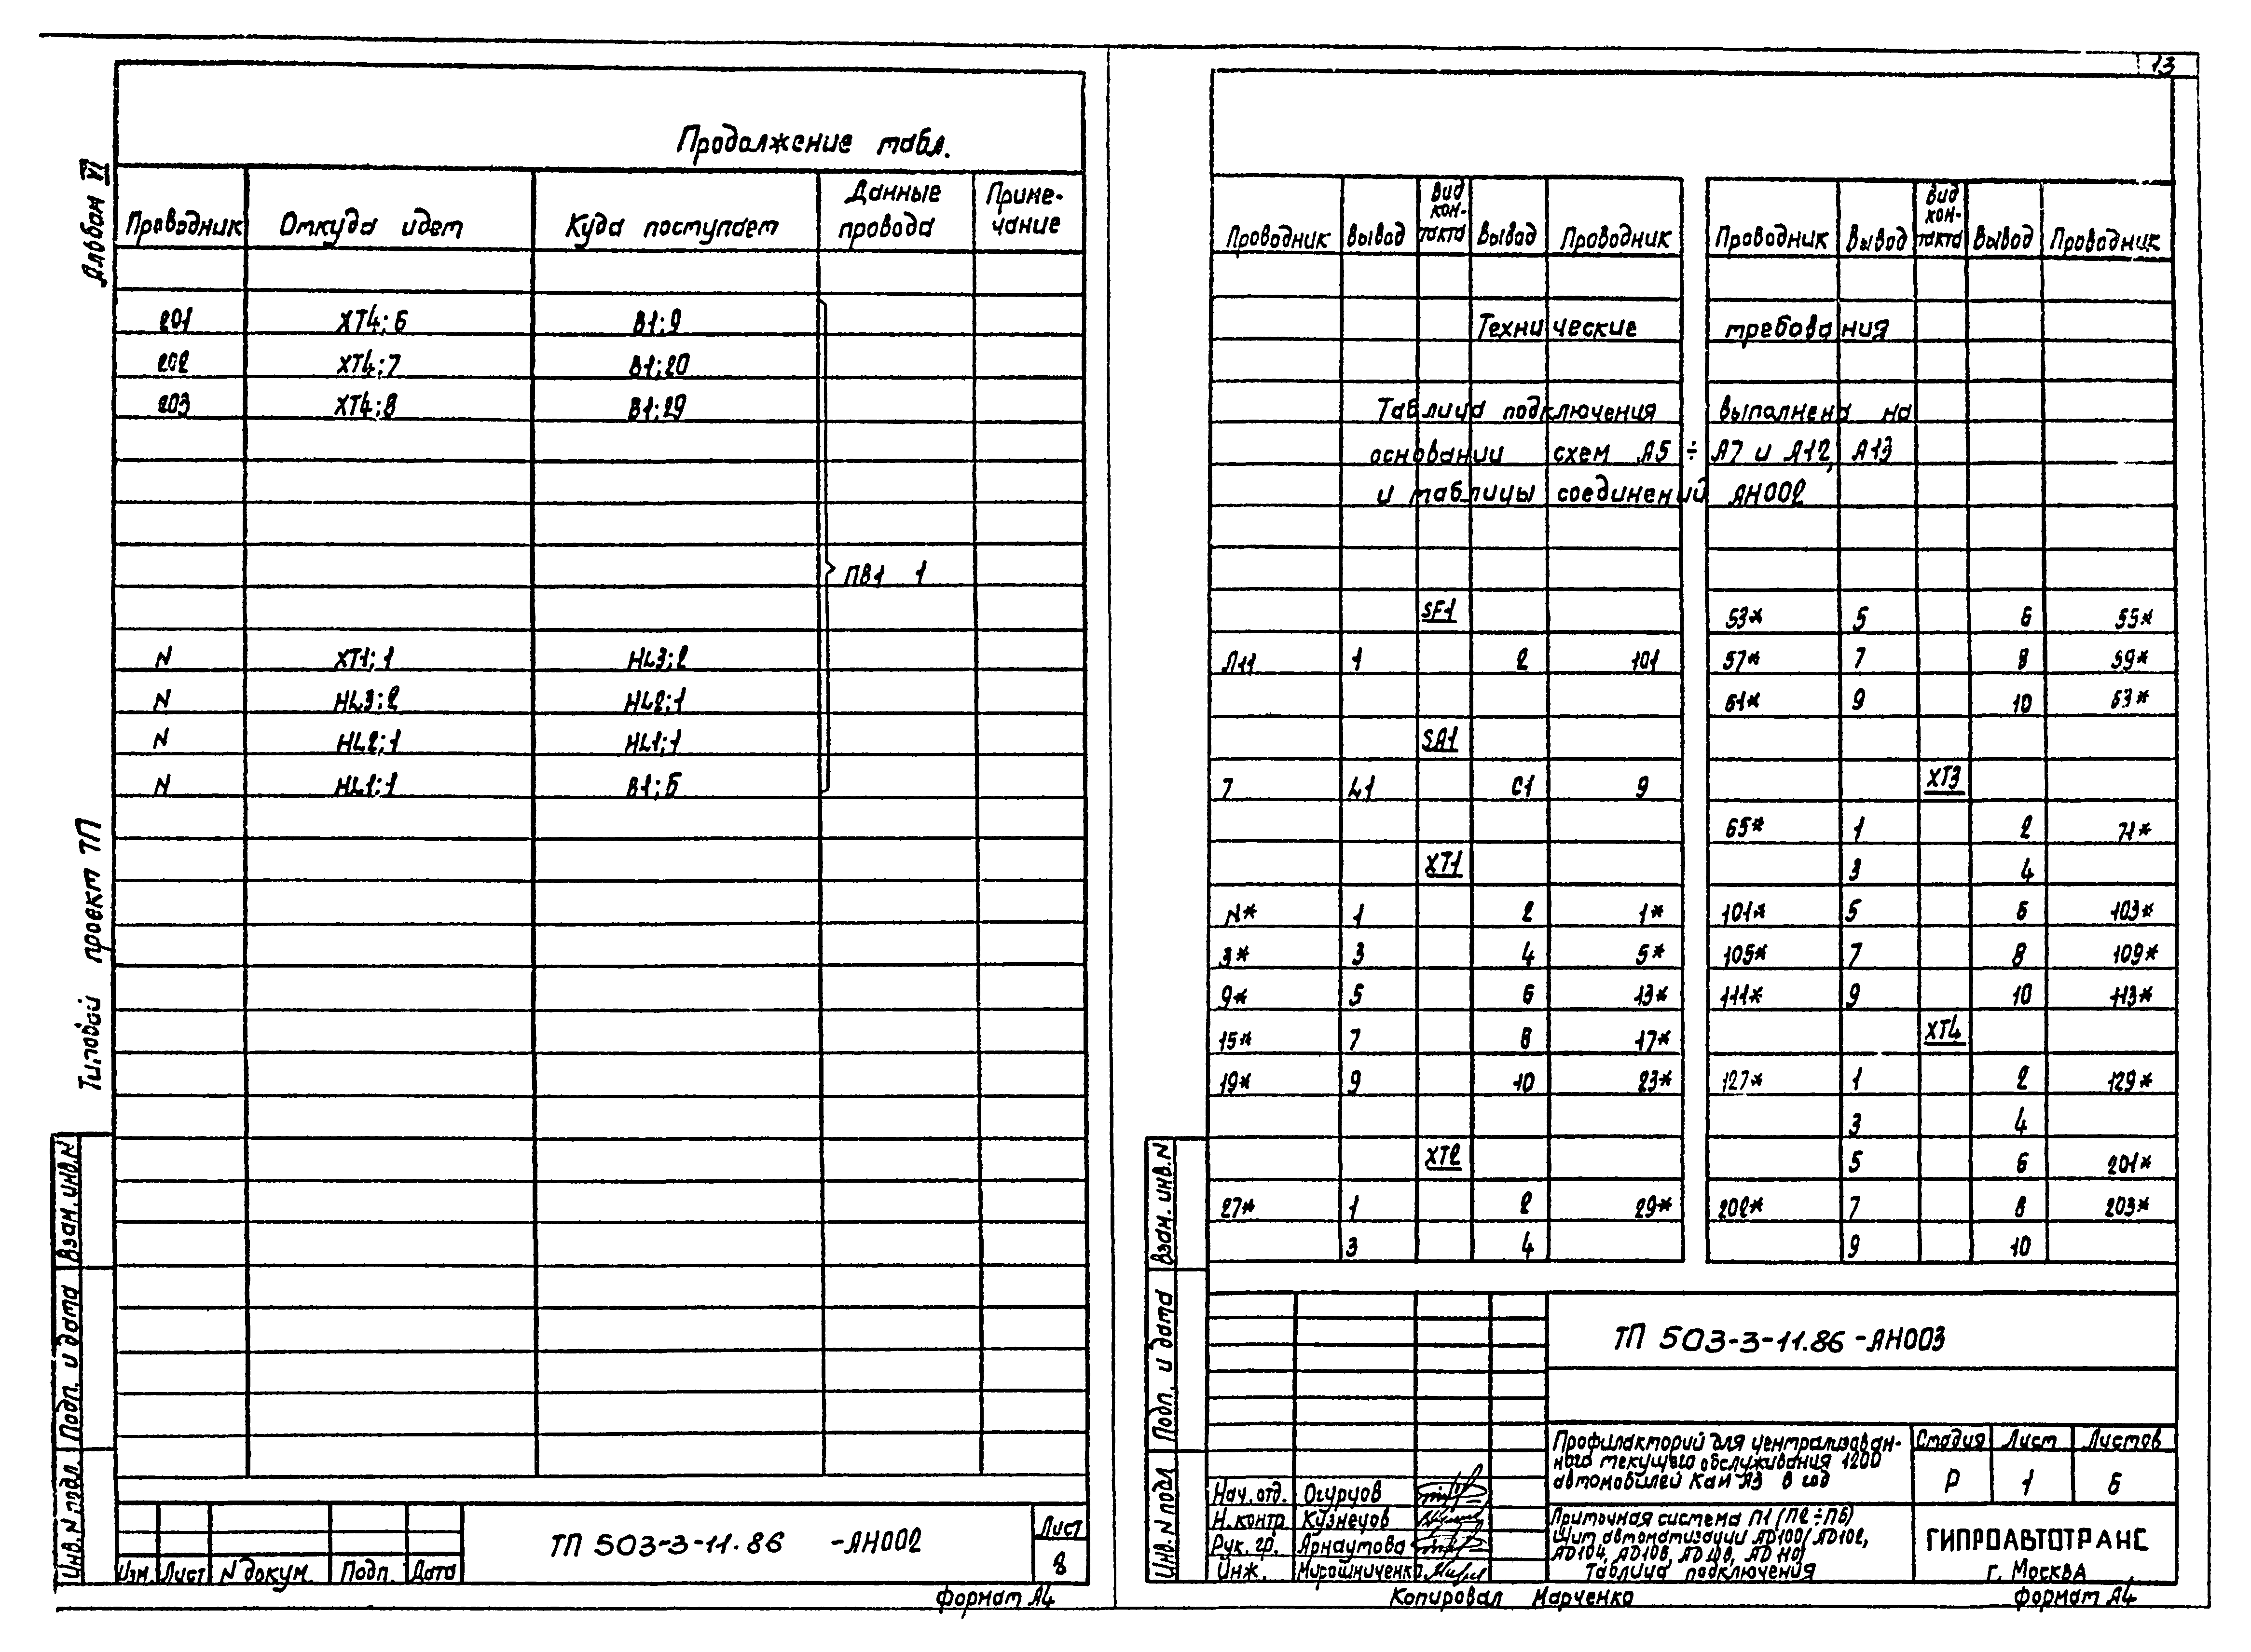 13
Альбом VI
Типовой проект ТП
Продолжение табл.
Проводник Откуда идет Куда поступает Данные провода Примечание
201 XT4;6 B1;9
202 XT4;7 B1;20
203 XT4;8 B1;29
ПВ1 1
N XT1;1 HL3;2
N HL3;2 HL2;1
N HL2;1 HL1;1
N HL1;1 B1;5
Взам. инв. N
Подп. и дата
Инв. N подл.
Изм. Лист N докум. Подп. Дата
ТП 503-3-11.86 -АН002
Лист
8
Формат А4
Проводник Вывод Вид контакта Вывод Проводник
Технические требования
Таблица подключения выполнена на
основании схем А5 ÷ А7 и А12, А13
и таблицы соединений АН002
SF1
Л11 1 2 101
SA1
7 L1 C1 9
XT1
N* 1 2 1*
3* 3 4 5*
9* 5 6 13*
15* 7 8 17*
19* 9 10 23*
XT2
27* 1 2 29*
3 4
Проводник Вывод Вид контакта Вывод Проводник
53* 5 6 55*
57* 7 8 59*
61* 9 10 63*
XT3
65* 1 2 71*
3 4
101* 5 6 103*
105* 7 8 109*
111* 9 10 113*
XT4
127* 1 2 129*
3 4
5 6 201*
202* 7 8 203*
9 10
Взам. инв. N
Подп. и дата
Инв. N подл
ТП 503-3-11.86 -АН003
Профилакторий для централизован-
ного текущего обслуживания 1200
автомобилей КамАЗ в год
Стадия Лист Листов
Р 1 6
Нач. отд. Огурцов
Н. контр Кузнецов
Рук. гр. Арнаутова
Инж. Мирошниченко
Приточная система П1 (П2÷П6)
Щит автоматизации AD100 (AD102,
AD104, AD106, AD108, AD110)
Таблица подключения
ГИПРОАВТОТРАНС
г. Москва
Копировал Марченко
Формат А4